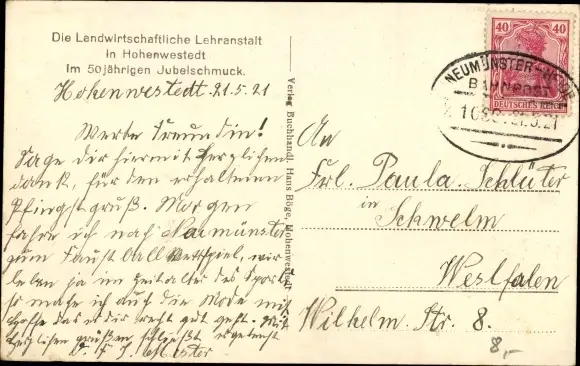 Die Landwirtschaftliche Lehranstalt
in Hohenwestedt
im 50jährigen Jubelschmuck.
Hohenwestedt 21.5.21
Werte Freundin!
Sage dir hiermit herzlichen
dank, für den erhaltenen
Pfingstgruß. Morgen
fahre ich nach Neumünster
zum Faustball Wettspiel, wir
leben ja im Zeitalter des Sports
so mache ich auch die Mode mit
hoffe das es dir recht gut geht. Mit
herzlichen grüßen schließt
Verlag Buchhandl. Hans Böge, Hohenwestedt
40 40
DEUTSCHES REICH
NEUMÜNSTER-
BAHNPOST
21.5.21
An
Frl. Paula Schlüter
in
Schwelm
Westfalen
Wilhelm Str. 8.
8,-